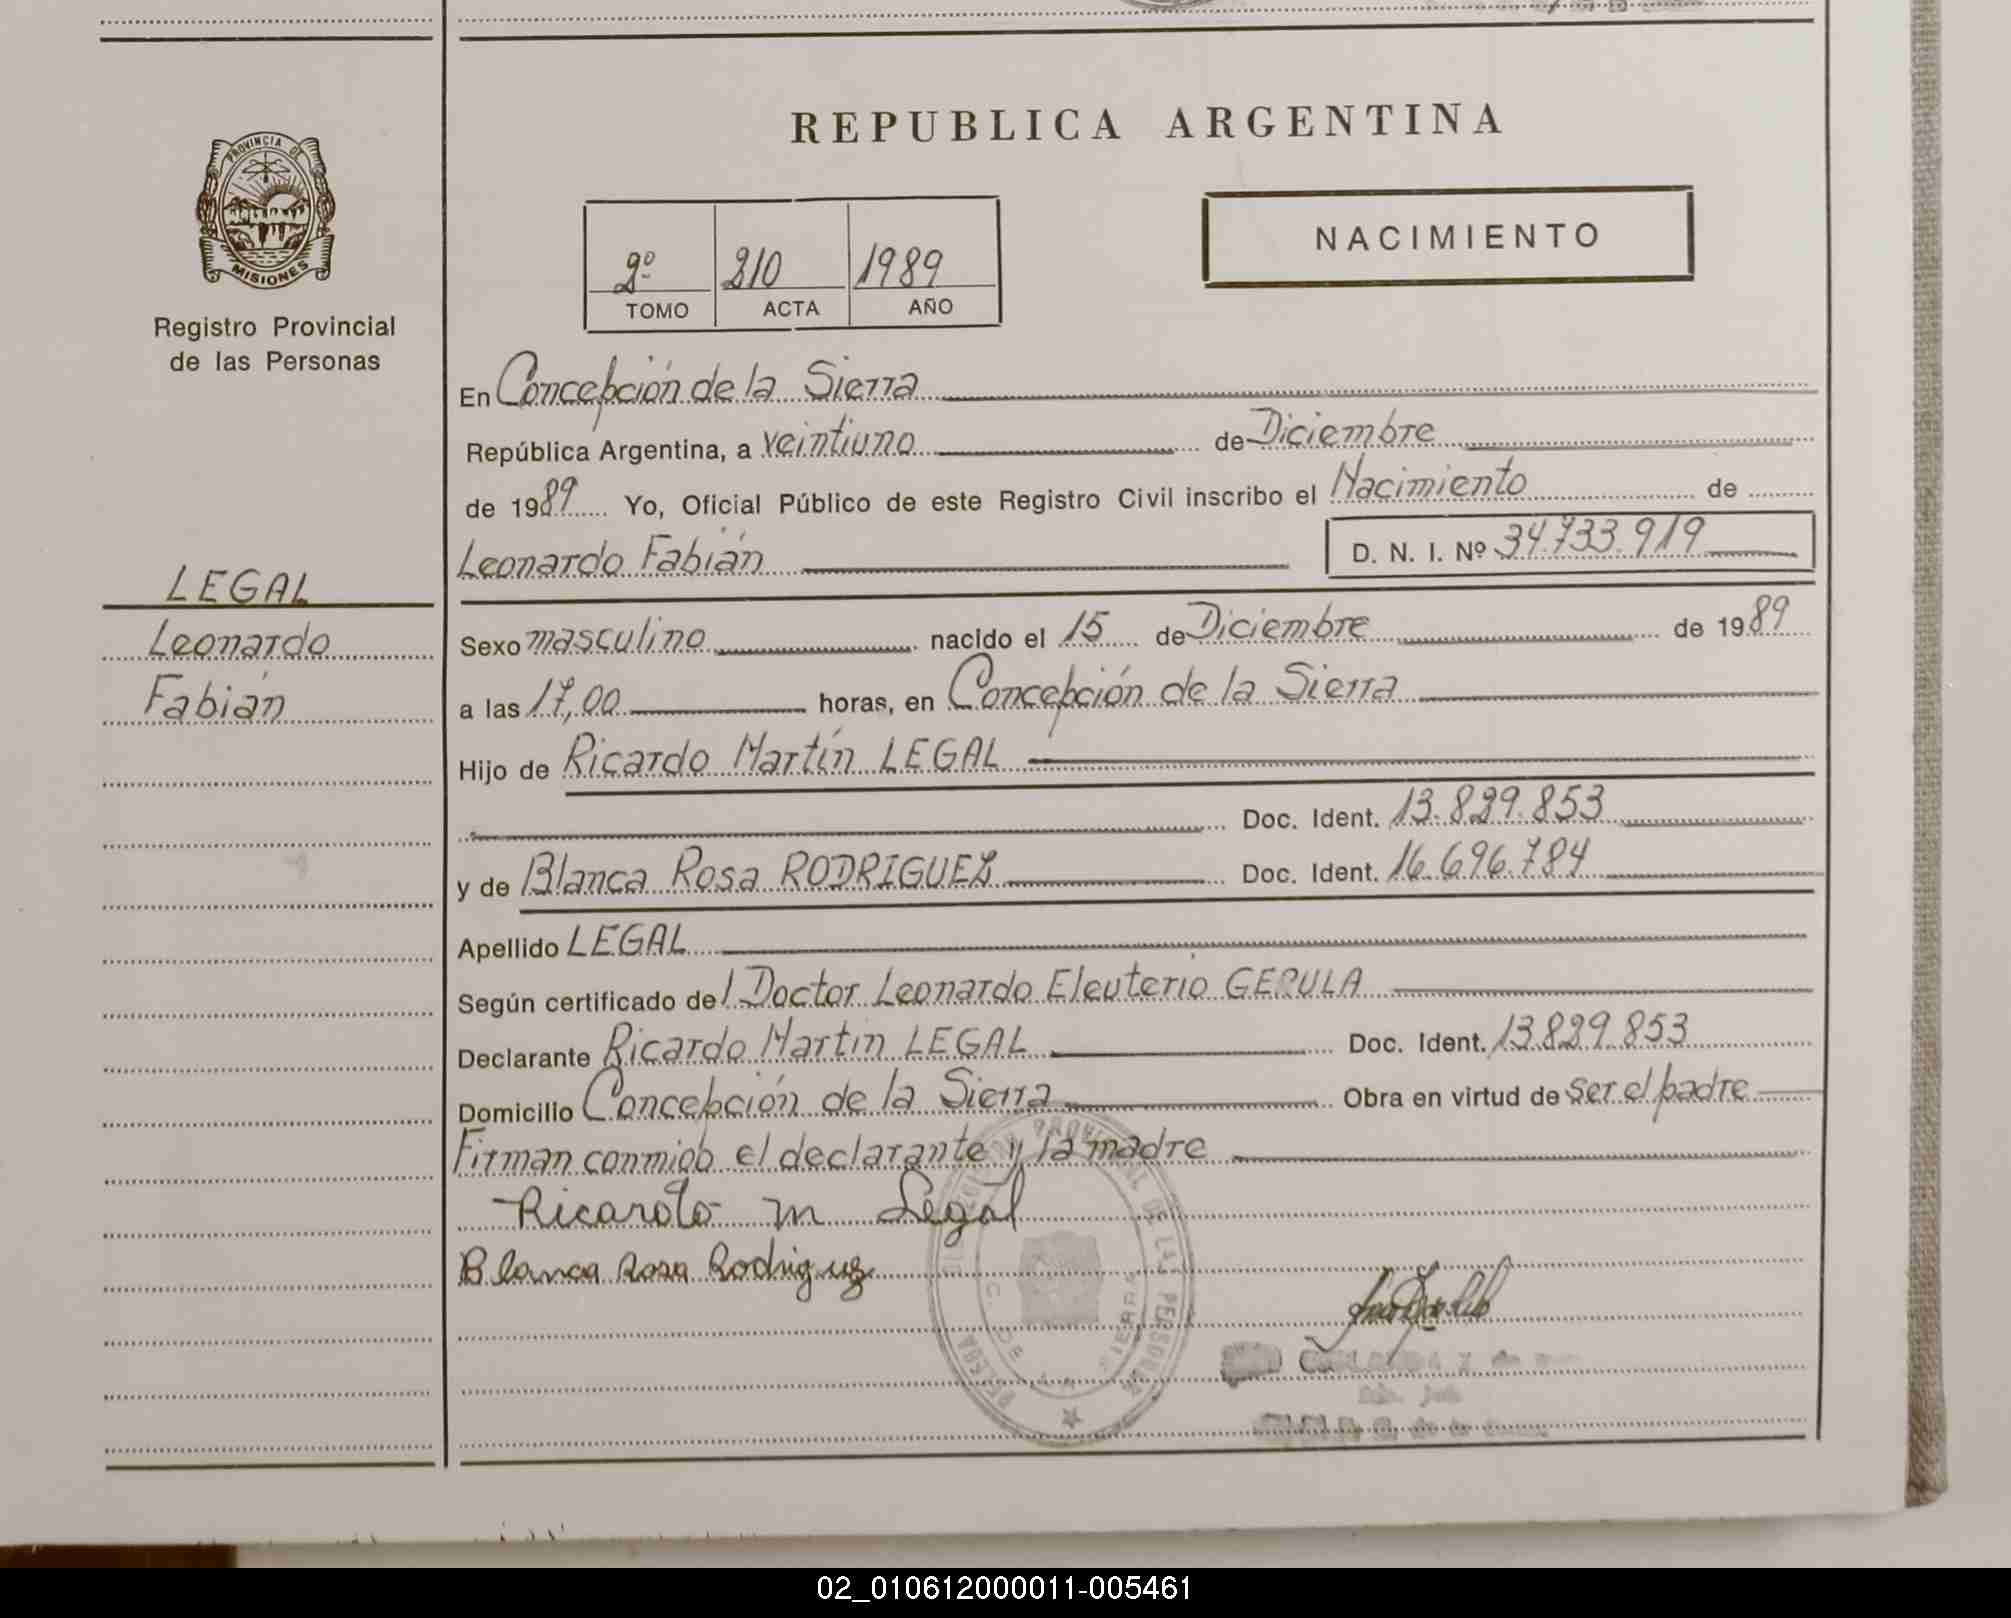 PROVINCIA DE
MISIONES
Registro Provincial
de las Personas
LEGAL
Leonardo
Fabián
REPUBLICA ARGENTINA
2º 210 1989
TOMO ACTA AÑO
NACIMIENTO
En Concepción de la Sierra
República Argentina, a veintiuno de Diciembre
de 1989 Yo, Oficial Público de este Registro Civil inscribo el Nacimiento de
Leonardo Fabián D. N. I. Nº 34.733.919
Sexo masculino nacido el 15 de Diciembre de 1989
a las 17,00 horas, en Concepción de la Sierra
Hijo de Ricardo Martín LEGAL
Doc. Ident. 13.829.853
y de Blanca Rosa RODRIGUEZ Doc. Ident. 16.696.784
Apellido LEGAL
Según certificado del Doctor Leonardo Eleuterio GERULA
Declarante Ricardo Martin LEGAL Doc. Ident. 13.829.853
Domicilio Concepción de la Sierra Obra en virtud de ser el padre
Firman conmigo el declarante y la madre
Ricardo M Legal
Blanca Rosa Rodriguez
02_010612000011-005461